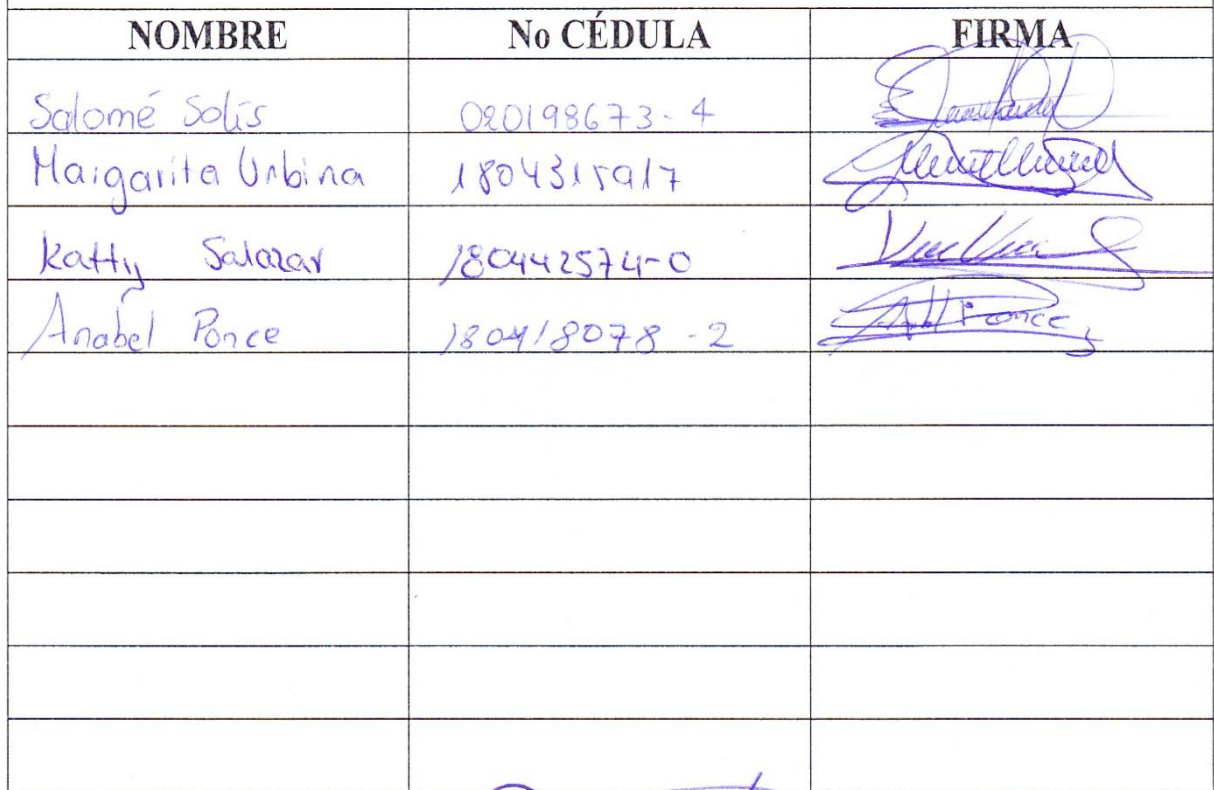 NOMBRE No CÉDULA FIRMA
Salomé Solís 020198673-4
Margarita Urbina 1804315917
Katty Salazar 180442574-0
Anabel Ponce 180418078-2 Ponce